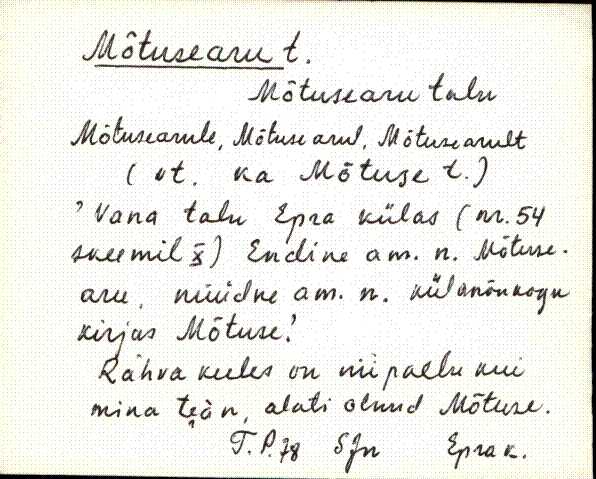 Mõtusearu t.
Mõtusearu talu
Mõtusearule, Mõtusearul, Mõtusearult
( vt. ka Mõtuse t.)
’Vana talu Epra külas (nr. 54
skeemil X) Endine am. n. Mõtuse-
aru, nüüdne am. n. külanõukogu
kirjas Mõtuse.’
Rahva keeles on nii palju kui
mina tean, alati olnud Mõtuse.
T.P. 78 SJn Epra k.